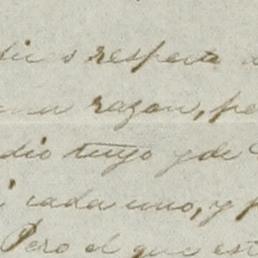 respecto
razon, pe
dio tuyo y de
cada uno, y p
Pero el que est